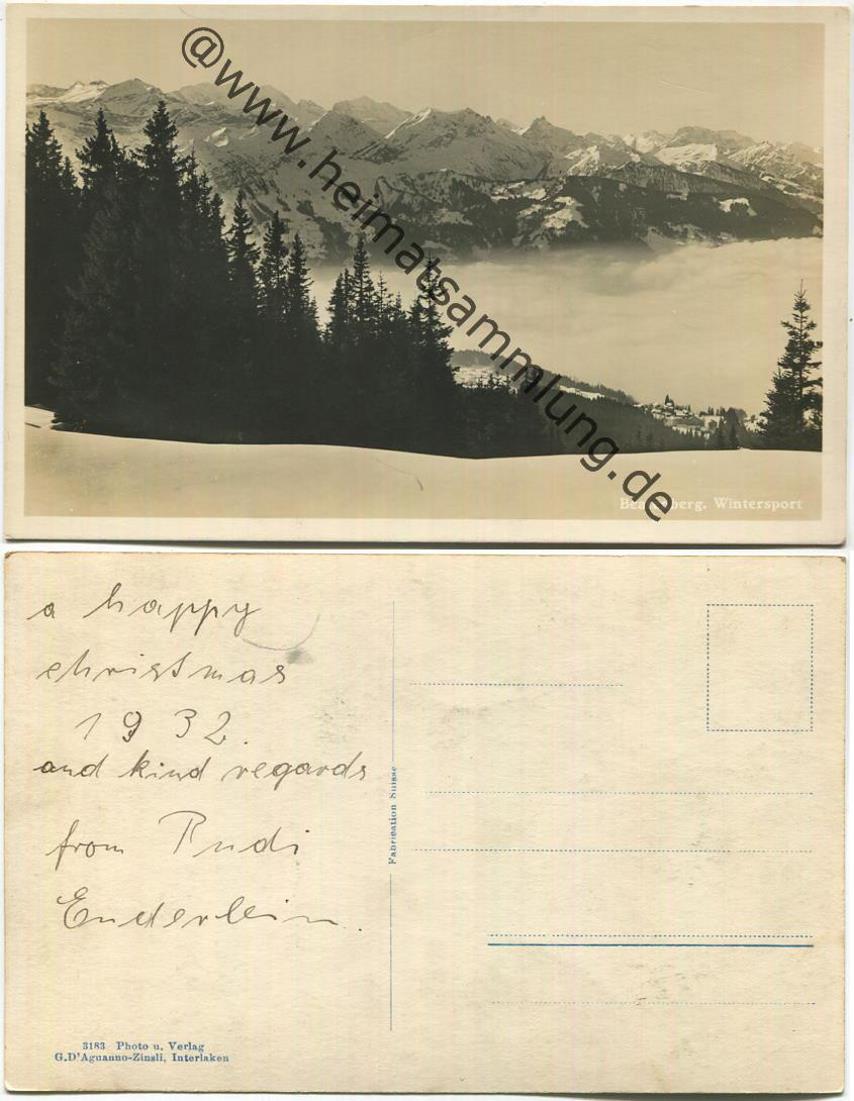 @www.heimatsammlung.de
Beatenberg. Wintersport
a happy
christmas
1932.
and kind regards
from Rudi
Enderlein.
Fabrication Suisse
3183 Photo u. Verlag
G.D'Aguanno-Zinsli, Interlaken